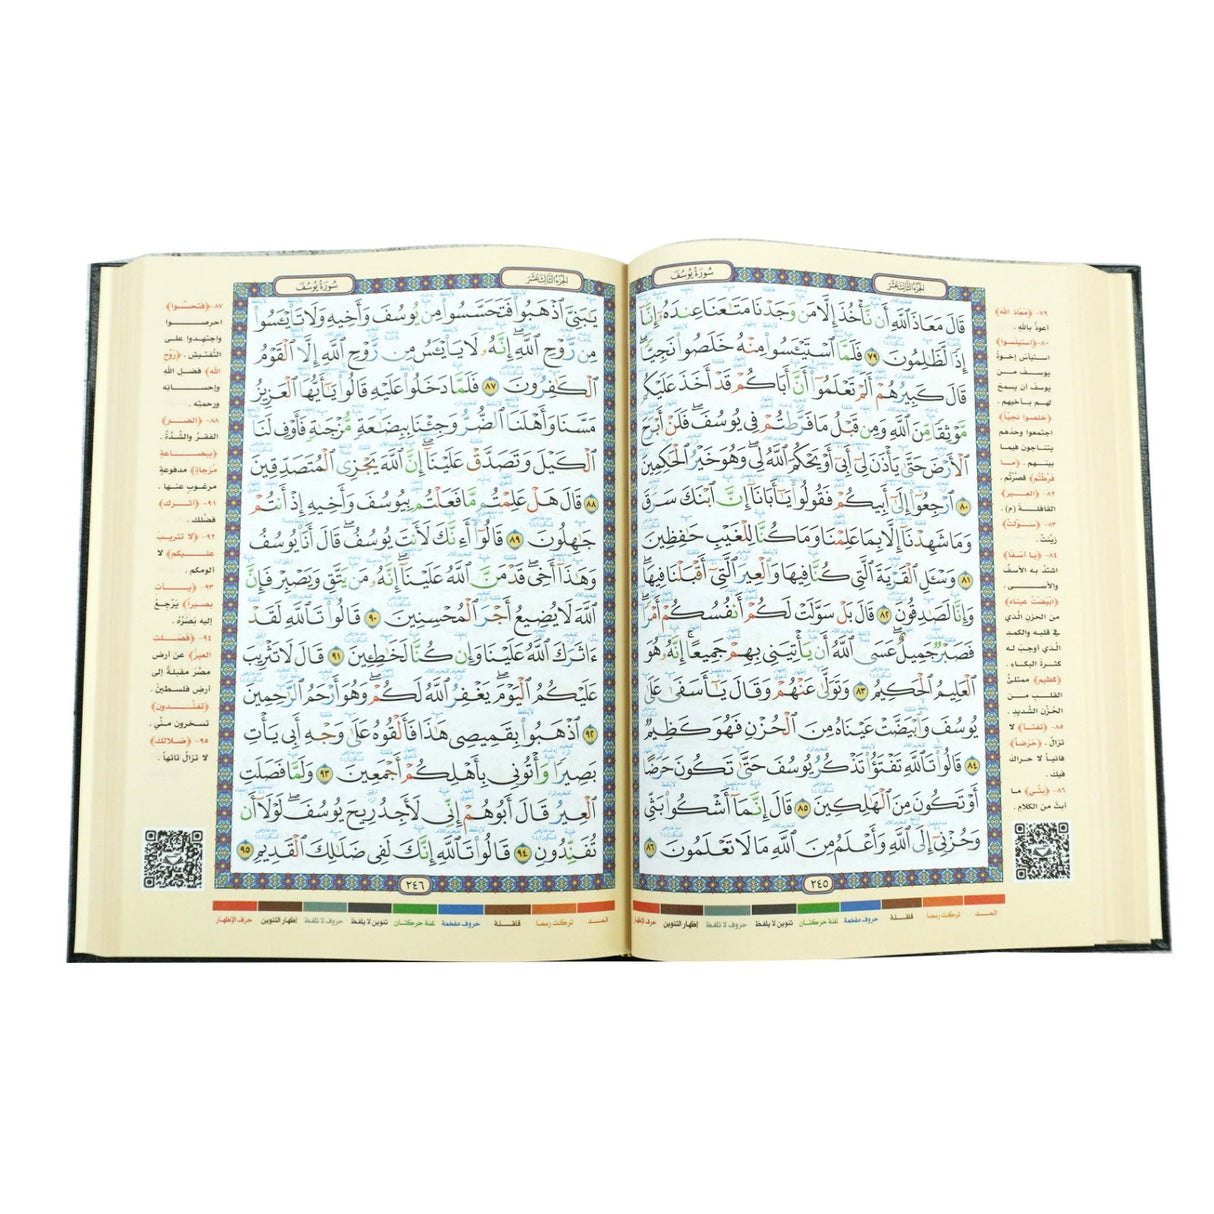 الجُزْءُ الثَّالِثَ عَشَرَ
سُورَةُ يُوسُفَ
قَالَ مَعَاذَ ٱللَّهِ أَن نَّأْخُذَ إِلَّا مَن وَجَدْنَا مَتَٰعَنَا عِندَهُۥٓ إِنَّآ
إِذًا لَّظَٰلِمُونَ ٧٩ فَلَمَّا ٱسْتَيْـَٔسُوا۟ مِنْهُ خَلَصُوا۟ نَجِيًّا ۖ
قَالَ كَبِيرُهُمْ أَلَمْ تَعْلَمُوٓا۟ أَنَّ أَبَاكُمْ قَدْ أَخَذَ عَلَيْكُم
مَّوْثِقًا مِّنَ ٱللَّهِ وَمِن قَبْلُ مَا فَرَّطتُمْ فِى يُوسُفَ ۖ فَلَنْ أَبْرَحَ
ٱلْأَرْضَ حَتَّىٰ يَأْذَنَ لِىٓ أَبِىٓ أَوْ يَحْكُمَ ٱللَّهُ لِى ۖ وَهُوَ خَيْرُ ٱلْحَٰكِمِينَ
٨٠ ٱرْجِعُوٓا۟ إِلَىٰٓ أَبِيكُمْ فَقُولُوا۟ يَٰٓأَبَانَآ إِنَّ ٱبْنَكَ سَرَقَ
وَمَا شَهِدْنَآ إِلَّا بِمَا عَلِمْنَا وَمَا كُنَّا لِلْغَيْبِ حَٰفِظِينَ
٨١ وَسْـَٔلِ ٱلْقَرْيَةَ ٱلَّتِى كُنَّا فِيهَا وَٱلْعِيرَ ٱلَّتِىٓ أَقْبَلْنَا فِيهَا ۖ
وَإِنَّا لَصَٰدِقُونَ ٨٢ قَالَ بَلْ سَوَّلَتْ لَكُمْ أَنفُسُكُمْ أَمْرًا ۖ
فَصَبْرٌ جَمِيلٌ ۖ عَسَى ٱللَّهُ أَن يَأْتِيَنِى بِهِمْ جَمِيعًا ۚ إِنَّهُۥ هُوَ
ٱلْعَلِيمُ ٱلْحَكِيمُ ٨٣ وَتَوَلَّىٰ عَنْهُمْ وَقَالَ يَٰٓأَسَفَىٰ عَلَىٰ
يُوسُفَ وَٱبْيَضَّتْ عَيْنَاهُ مِنَ ٱلْحُزْنِ فَهُوَ كَظِيمٌ
٨٤ قَالُوا۟ تَٱللَّهِ تَفْتَؤُا۟ تَذْكُرُ يُوسُفَ حَتَّىٰ تَكُونَ حَرَضًا
أَوْ تَكُونَ مِنَ ٱلْهَٰلِكِينَ ٨٥ قَالَ إِنَّمَآ أَشْكُوا۟ بَثِّى
وَحُزْنِىٓ إِلَى ٱللَّهِ وَأَعْلَمُ مِنَ ٱللَّهِ مَا لَا تَعْلَمُونَ ٨٦
٢٤٥
٧٩- ﴿مَعَاذَ الله﴾
أعوذُ باللهِ .
٨٠- ﴿استيئسوا﴾
استيأسَ إخوةُ
يوسف من
يوسف أن يسمحَ
لهم بـأخيهم .
﴿خلصوا نجيّاً﴾
اجتمعوا وحدهم
يتناجون فيما
بينهم . ﴿ما
فرطتُم﴾ قصّرْتم .
٨٢- ﴿العير﴾
القافلة (م) .
٨٣- ﴿سـوّلتْ﴾
زيّنتْ .
٨٤- ﴿يا أسفَا﴾
اشتدّ به الأسفُ
والأسـى .
﴿ابيضّتْ عيناه﴾
من الحزن الّذي
في قلبه والكمد
الّذي أوجب له
كثرةَ البكاءِ .
﴿كظيم﴾ ممتلئُ
القلب من
الحُزْن الشّديد .
٨٥- ﴿تفتأ﴾ لا
تزالُ . ﴿حَرَضاً﴾
فانياً لا حراك
فيك .
٨٦- ﴿بثّي﴾ ما
أبثّ من الكلام .
المـد
تركت رسما
قلقلـة
حروف مفخمة
غنة حركتان
تنوين لا يلفظ
حروف لا تلفظ
إظهار التنوين
حرف الإظهار
الجُزْءُ الثَّالِثَ عَشَرَ
سُورَةُ يُوسُفَ
يَٰبَنِىَّ ٱذْهَبُوا۟ فَتَحَسَّسُوا۟ مِن يُوسُفَ وَأَخِيهِ وَلَا تَا۟يْـَٔسُوا۟
مِن رَّوْحِ ٱللَّهِ ۖ إِنَّهُۥ لَا يَا۟يْـَٔسُ مِن رَّوْحِ ٱللَّهِ إِلَّا ٱلْقَوْمُ
ٱلْكَٰفِرُونَ ٨٧ فَلَمَّا دَخَلُوا۟ عَلَيْهِ قَالُوا۟ يَٰٓأَيُّهَا ٱلْعَزِيزُ
مَسَّنَا وَأَهْلَنَا ٱلضُّرُّ وَجِئْنَا بِبِضَٰعَةٍ مُّزْجَىٰةٍ فَأَوْفِ لَنَا
ٱلْكَيْلَ وَتَصَدَّقْ عَلَيْنَآ ۖ إِنَّ ٱللَّهَ يَجْزِى ٱلْمُتَصَدِّقِينَ
٨٨ قَالَ هَلْ عَلِمْتُم مَّا فَعَلْتُم بِيُوسُفَ وَأَخِيهِ إِذْ أَنتُمْ
جَٰهِلُونَ ٨٩ قَالُوٓا۟ أَءِنَّكَ لَأَنتَ يُوسُفُ ۖ قَالَ أَنَا۠ يُوسُفُ
وَهَٰذَآ أَخِى ۖ قَدْ مَنَّ ٱللَّهُ عَلَيْنَآ ۖ إِنَّهُۥ مَن يَتَّقِ وَيَصْبِرْ فَإِنَّ
ٱللَّهَ لَا يُضِيعُ أَجْرَ ٱلْمُحْسِنِينَ ٩٠ قَالُوا۟ تَٱللَّهِ لَقَدْ
ءَاثَرَكَ ٱللَّهُ عَلَيْنَا وَإِن كُنَّا لَخَٰطِـِٔينَ ٩١ قَالَ لَا تَثْرِيبَ
عَلَيْكُمُ ٱلْيَوْمَ ۖ يَغْفِرُ ٱللَّهُ لَكُمْ ۖ وَهُوَ أَرْحَمُ ٱلرَّٰحِمِينَ
٩٢ ٱذْهَبُوا۟ بِقَمِيصِى هَٰذَا فَأَلْقُوهُ عَلَىٰ وَجْهِ أَبِى يَأْتِ
بَصِيرًا وَأْتُونِى بِأَهْلِكُمْ أَجْمَعِينَ ٩٣ وَلَمَّا فَصَلَتِ
ٱلْعِيرُ قَالَ أَبُوهُمْ إِنِّى لَأَجِدُ رِيحَ يُوسُفَ ۖ لَوْلَآ أَن
تُفَنِّدُونِ ٩٤ قَالُوا۟ تَٱللَّهِ إِنَّكَ لَفِى ضَلَٰلِكَ ٱلْقَدِيمِ ٩٥
٢٤٦
٨٧- ﴿فتحسّسوا﴾
احرصـوا
واجتهدوا على
التّفتيش . ﴿رَوْحِ
الله﴾ فضل الله
وإحسـانه
ورحمته .
٨٨- ﴿الضـر﴾
الفقرُ والشّدّةُ .
﴿ببضـاعةٍ
مُزجاةٍ﴾ مدفوعةٍ
مرغوبٍ عنها .
٩١- ﴿آثـرك﴾
فضّلك .
٩٢- ﴿لا تثريبَ
عليكم﴾ لا
ألومكم .
٩٣- ﴿يـأتِ
بصيراً﴾ يَرْجِعْ
إليه بصَرُهُ .
٩٤- ﴿فَصَلَتِ
العيرُ﴾ عن أرضِ
مصْرَ مقبلةً إلى
أرضِ فلسطينَ .
﴿تفنّدون﴾
تسخرون منّي .
٩٥- ﴿ضلالك﴾
لا تزالُ تائهاً .
المـد
تركت رسما
قلقلـة
حروف مفخمة
غنة حركتان
تنوين لا يلفظ
حروف لا تلفظ
إظهار التنوين
حرف الإظهار